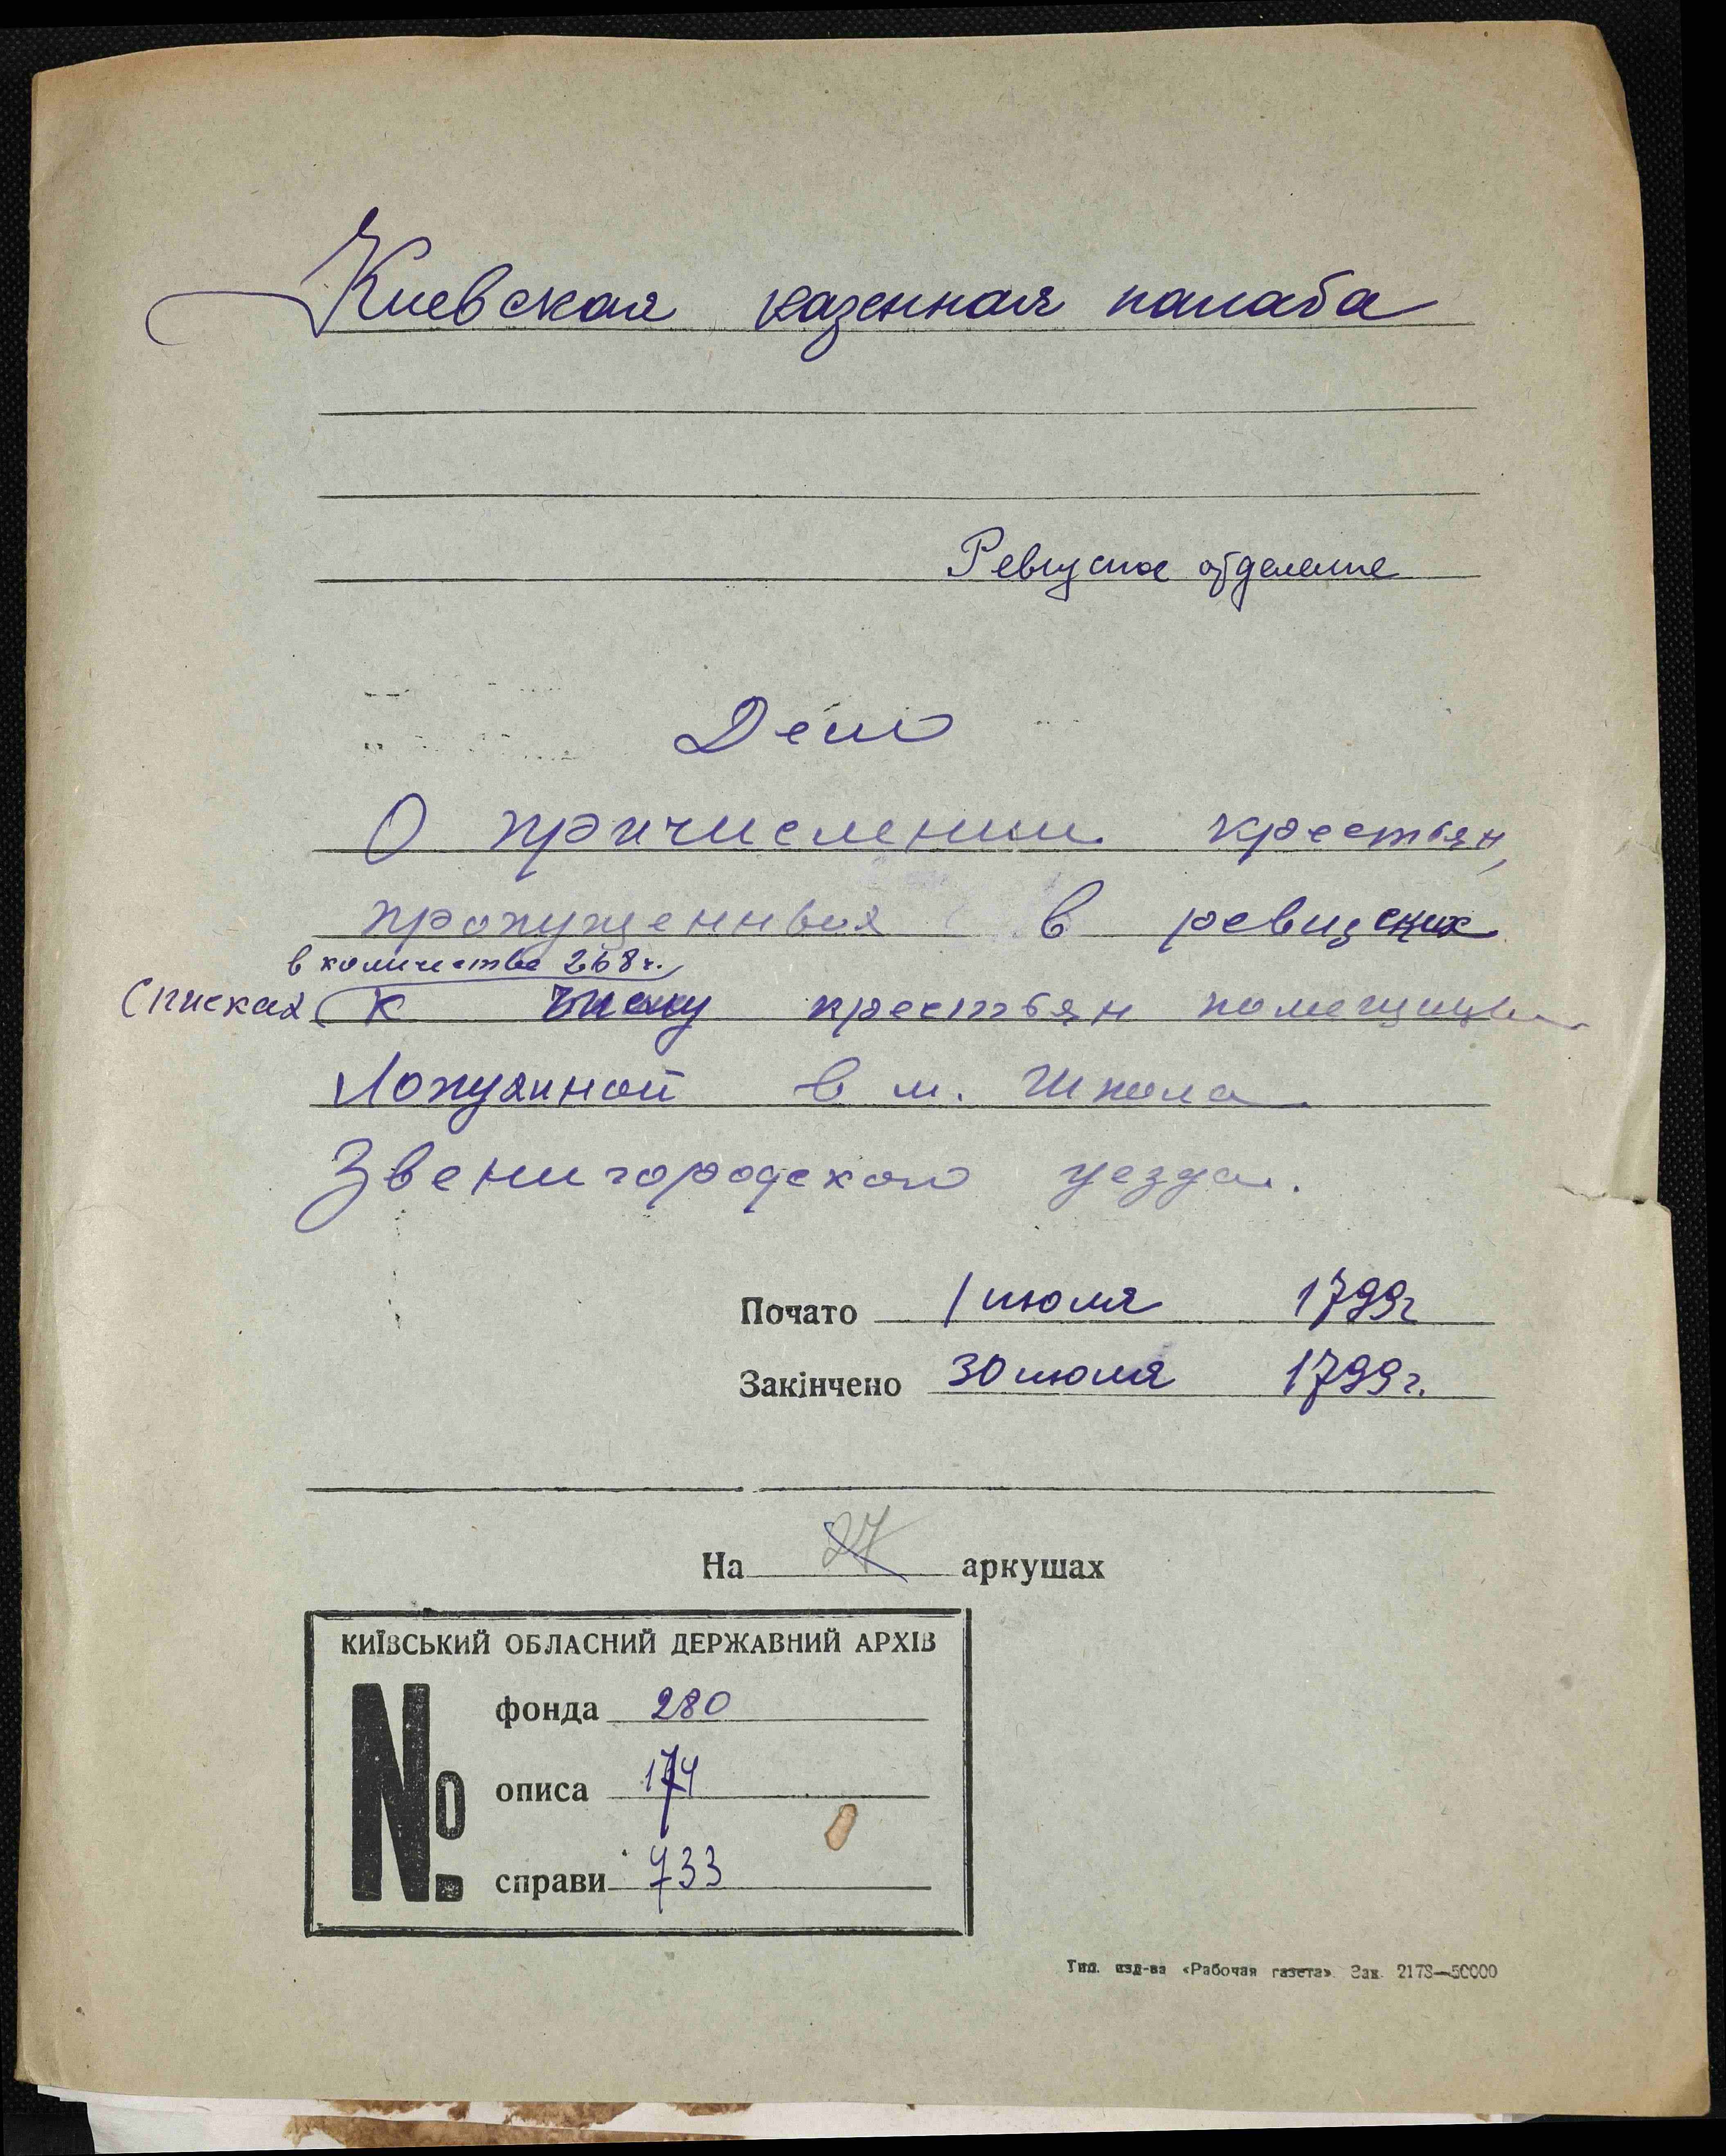 Киевская казенная палата
Ревизское отделение
Дело
О причислении крестьян,
пропущенных в ревизских
в количестве 268 ч.
списках к числу крестьян помещицы
Лопухиной в м. Шпола
Звенигородского уезда.
Почато 1 июля 1799 г
Закінчено 30 июля 1799 г.
На 27 аркушах
КИЇВСЬКИЙ ОБЛАСНИЙ ДЕРЖАВНИЙ АРХІВ
№
фонда 280
описа 174
справи 733
Тип. изд-ва «Рабочая газета». Зак. 2178—50000